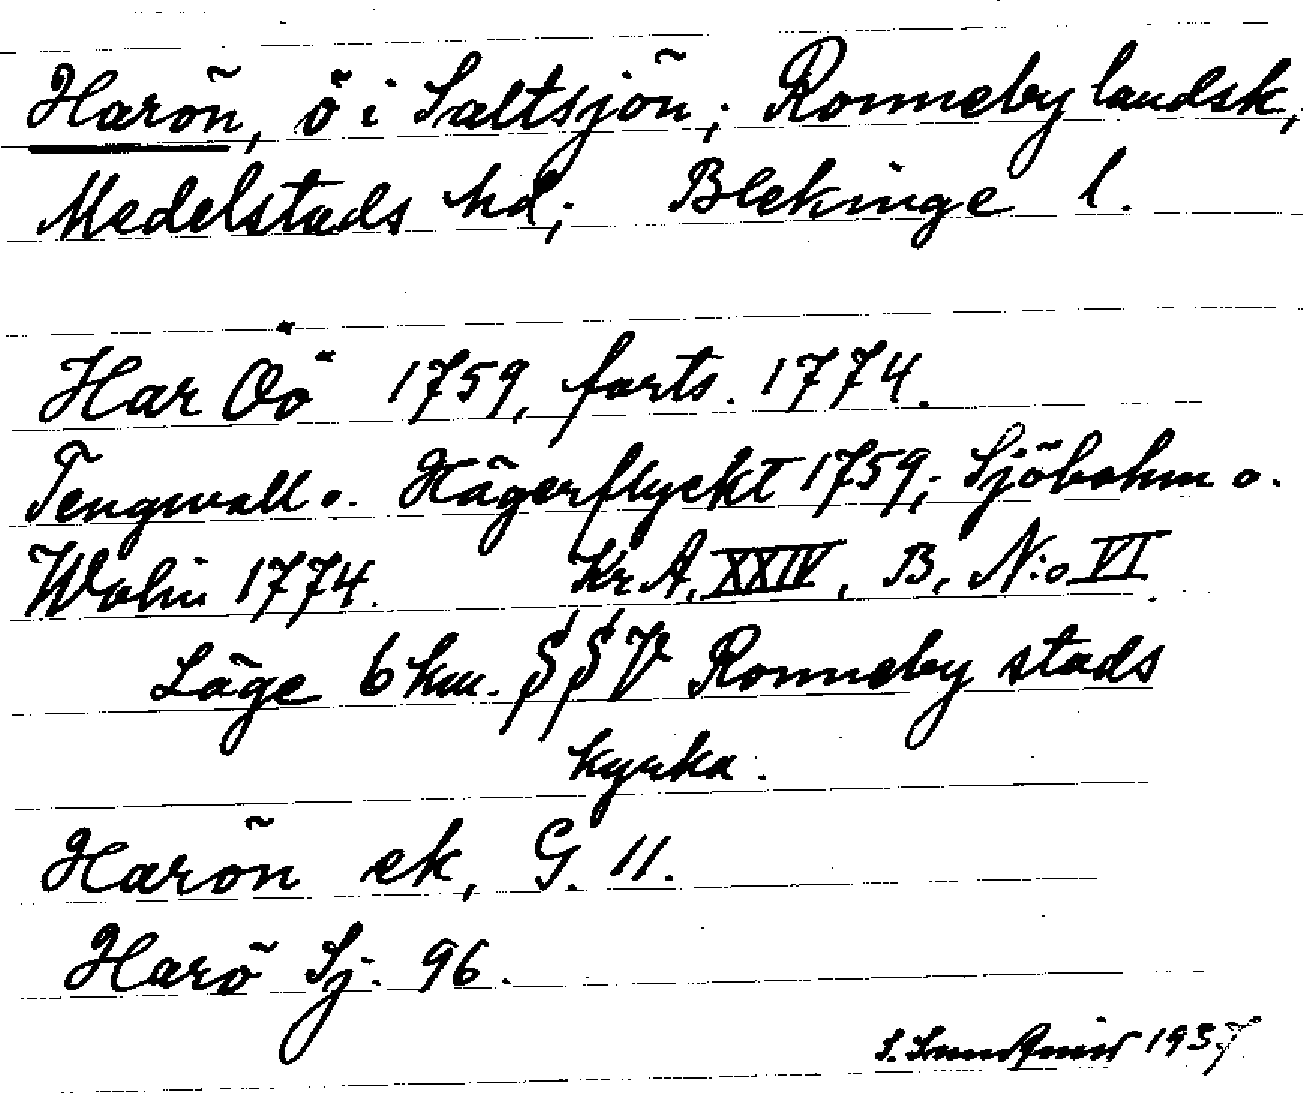 Harön, ö i Saltsjön; Ronneby landsk,
Medelstads hd; Blekinge l.
Har Öö 1759, forts. 1774.
Tengwall o. Hägerflyckt 1759; Sjöbohm o.
Wolin 1774. Kr A. XXIV, B, N:o VI
Läge 6 km. §§V Ronneby stads
kyrka.
Harön ek, G. 11.
Harö Sj. 96.
S. 1937